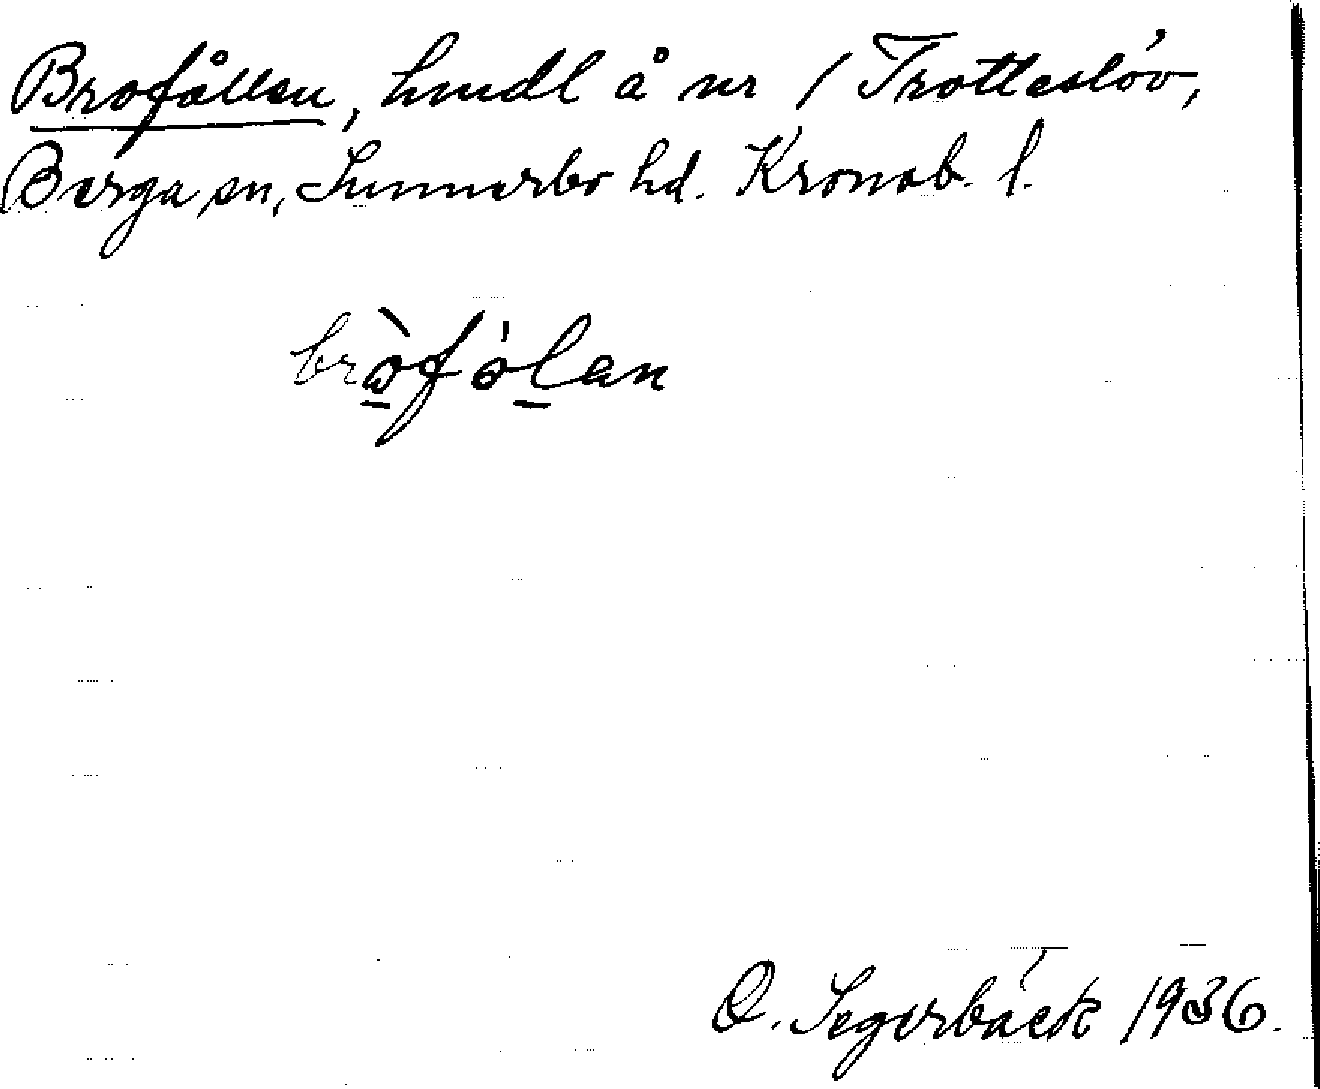 Brofållen, hmdl å nr 1 Trotteslöv,
Berga sn, Sunnerbo hd. Kronob. l.
bròfólan
O. Segerbäck 1936.